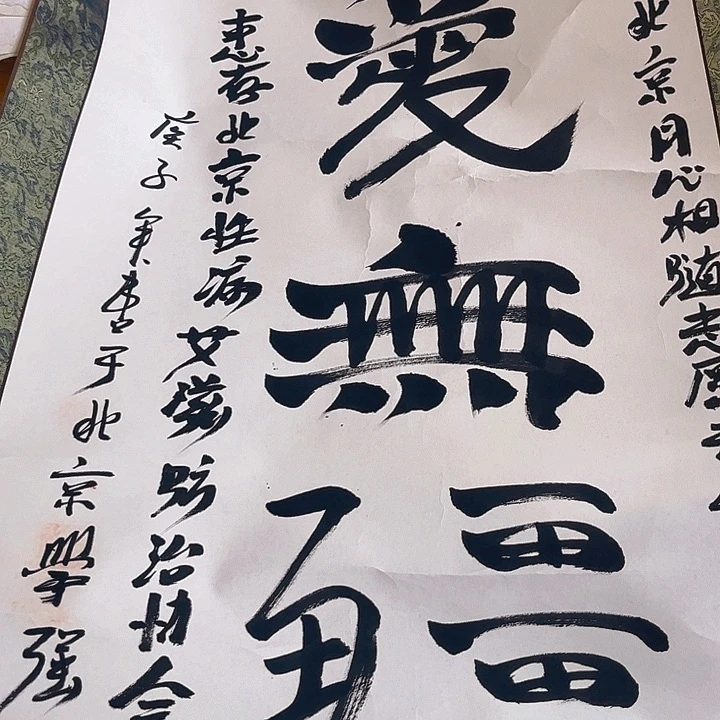 北京同心相随志愿者
愛無疆
惠存北京性病艾滋防治协会
庚子年書于北京學强